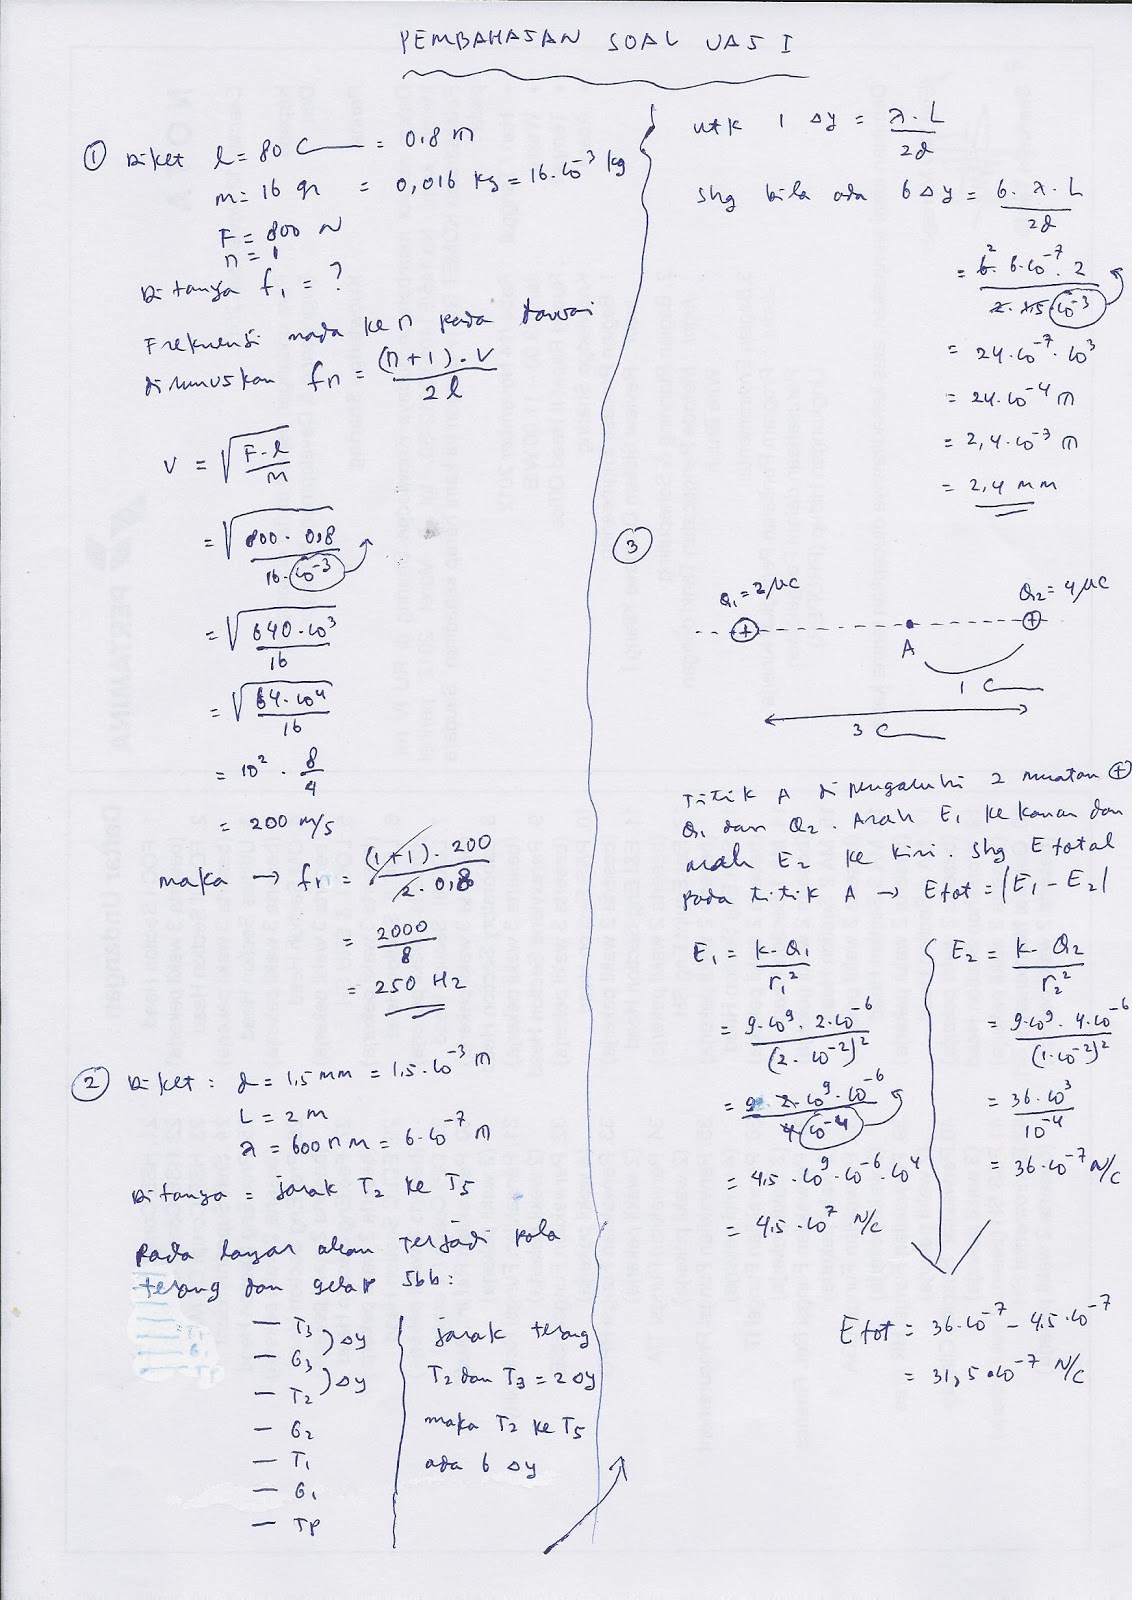 PEMBAHASAN SOAL UAS I
① Diket l = 80 cm = 0.8 m
m = 16 gr = 0,016 kg = 16.10⁻³ kg
F = 800 N
n = 1
Ditanya f₁ = ?
Frekuensi nada ke n pada dawai
dirumuskan fn = (n+1).V / 2l
V = √(F.l / m)
= √(800 . 0,8 / 16.10⁻³)
= √(640.10³ / 16)
= √(64.10⁴ / 16)
= 10² . 8/4
= 200 m/s
maka → fn = (1+1). 200 / 2. 0,8
= 2000 / 8
= 250 Hz
② Diket : d = 1,5 mm = 1,5.10⁻³ m
L = 2 m
λ = 600 nm = 6.10⁻⁷ m
Ditanya = jarak T₂ ke T₅
Pada layar akan terjadi pola
terang dan gelap sbb:
— T₃ ) Δy
— G₃
— T₂ ) Δy
— G₂
— T₁
— G₁
— TP
jarak terang
T₂ dan T₃ = 2 Δy
maka T₂ ke T₅
ada 6 Δy
utk 1 Δy = λ. L / 2d
shg bila ada 6 Δy = 6. λ. L / 2d
= 6. 6.10⁻⁷. 2 / 2. 1,5 10⁻³
= 24.10⁻⁷. 10³
= 24.10⁻⁴ m
= 2,4.10⁻³ m
= 2,4 mm
③
Q₁ = 2 μC Q₂ = 4 μC
+ A +
1 cm
3 cm
Titik A dipengaruhi 2 muatan ⊕
Q₁ dan Q₂. Arah E₁ ke kanan dan
arah E₂ ke kiri. Shg E total
pada titik A → Etot = |E₁ - E₂|
E₁ = k. Q₁ / r₁²
= 9.10⁹. 2.10⁻⁶ / (2. 10⁻²)²
= 9. 2. 10⁹. 10⁻⁶ / 4 10⁻⁴
= 4,5 . 10⁹. 10⁻⁶. 10⁴
= 4,5 . 10⁷ N/C
E₂ = k. Q₂ / r₂²
= 9.10⁹. 4.10⁻⁶ / (1.10⁻²)²
= 36.10³ / 10⁻⁴
= 36.10⁻⁷ N/C
E tot = 36.10⁻⁷ - 4,5.10⁻⁷
= 31,5.10⁻⁷ N/C